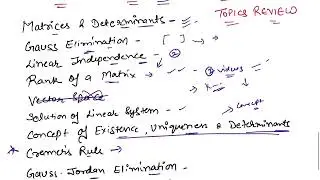 TOPICS REVIEW
Matrices & Determinants -
Gauss Elimination - [ ] →
Linear Independence -
Rank of a Matrix - 3 videos
Vector Space
Solution of Linear System - Concept
Concept of Existence, Uniqueness & Determinants
* Cremer's Rule -
Gauss-Jordan Elimination -